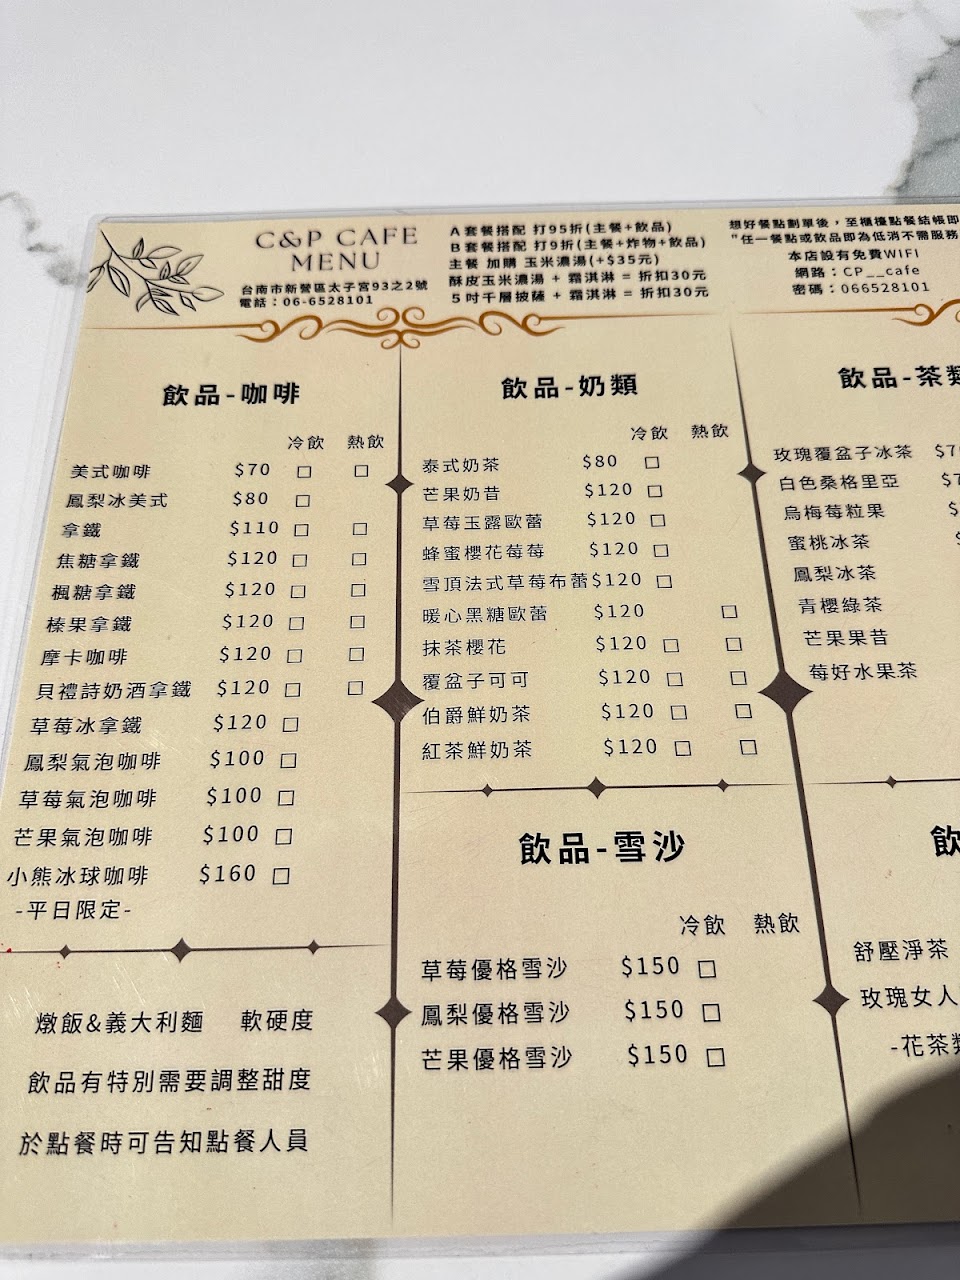 C&P CAFE
MENU
台南市新營區太子宮93之2號
電話：06-6528101
A套餐搭配 打95折(主餐+飲品)
B套餐搭配 打9折(主餐+炸物+飲品)
主餐 加購 玉米濃湯(+$35元)
酥皮玉米濃湯 + 霜淇淋 = 折扣30元
5吋千層披薩 + 霜淇淋 = 折扣30元
想好餐點劃單後，至櫃檯點餐結帳即
"任一餐點或飲品即為低消不需服務
本店設有免費WIFI
網路：CP__cafe
密碼：066528101
飲品-咖啡
冷飲 熱飲
美式咖啡 $70 □ □
鳳梨冰美式 $80 □
拿鐵 $110 □ □
焦糖拿鐵 $120 □ □
楓糖拿鐵 $120 □ □
榛果拿鐵 $120 □ □
摩卡咖啡 $120 □ □
貝禮詩奶酒拿鐵 $120 □ □
草莓冰拿鐵 $120 □
鳳梨氣泡咖啡 $100 □
草莓氣泡咖啡 $100 □
芒果氣泡咖啡 $100 □
小熊冰球咖啡 $160 □
-平日限定-
燉飯&義大利麵 軟硬度
飲品有特別需要調整甜度
於點餐時可告知點餐人員
飲品-奶類
冷飲 熱飲
泰式奶茶 $80 □
芒果奶昔 $120 □
草莓玉露歐蕾 $120 □
蜂蜜櫻花莓莓 $120 □
雪頂法式草莓布蕾 $120 □
暖心黑糖歐蕾 $120 □
抹茶櫻花 $120 □ □
覆盆子可可 $120 □ □
伯爵鮮奶茶 $120 □ □
紅茶鮮奶茶 $120 □ □
飲品-雪沙
冷飲 熱飲
草莓優格雪沙 $150 □
鳳梨優格雪沙 $150 □
芒果優格雪沙 $150 □
飲品-茶類
玫瑰覆盆子冰茶
白色桑格里亞
烏梅莓粒果
蜜桃冰茶
鳳梨冰茶
青櫻綠茶
芒果果昔
莓好水果茶
飲
舒壓淨茶
玫瑰女人
-花茶類